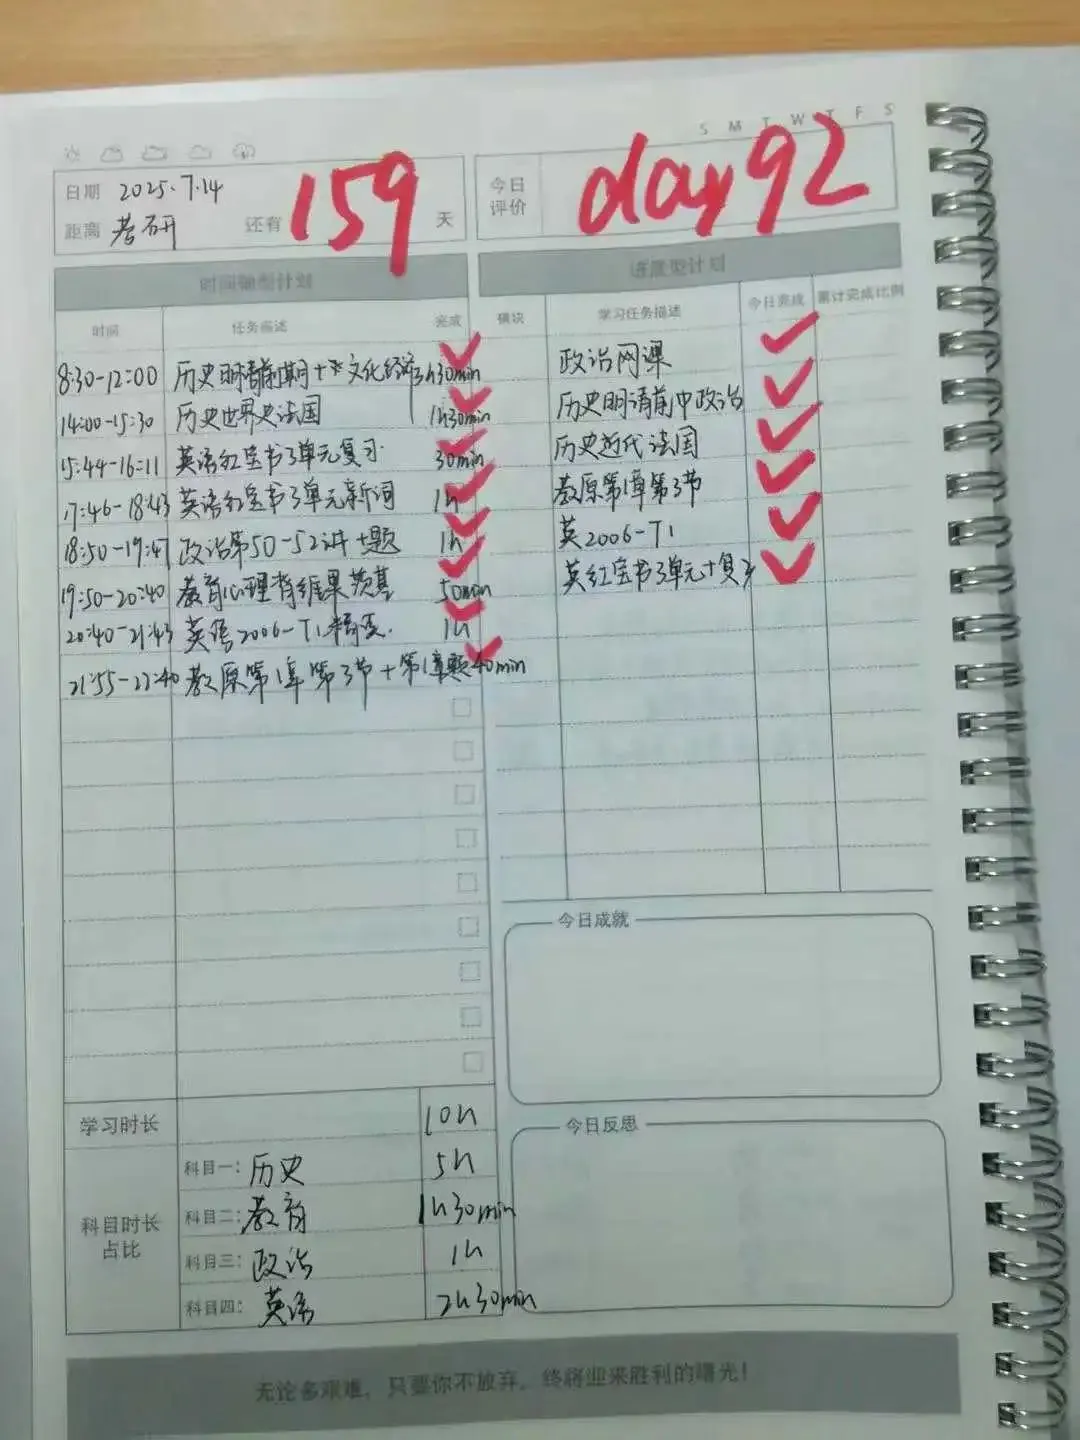 S M T W T F S
日期 2025.7.14
距离 考研 还有 159 天
今日评价 day92
时间轴型计划
时间 任务描述 完成
8:30-12:00 历史明清前期+*文化经济 3h30min
14:00-15:30 历史世界史法国 1h30min
15:44-16:11 英语红宝书3单元复习 30min
17:46-18:43 英语红宝书3单元新词 1h
18:50-19:47 政治第50-52讲+题 1h
19:50-20:40 教育心理背维果茨基 50min
20:40-21:43 英语2006-T1精, 1h
21:55-22:40 教原第1章第3节+第1章题 40min
学习时长 10h
科目时长占比
科目一: 历史 5h
科目二: 教育 1h30min
科目三: 政治 1h
科目四: 英语 2h30min
进度型计划
模块 学习任务描述 今日完成 累计完成比例
政治网课
历史明清前中政治
历史近代法国
教原第1章第3节
英2006-T1
英红宝书3单元+复习
今日成就
今日反思
无论多艰难，只要你不放弃，终将迎来胜利的曙光！